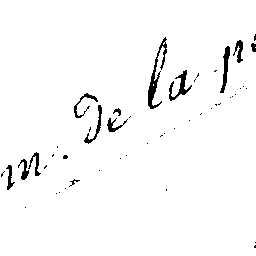 m. de la